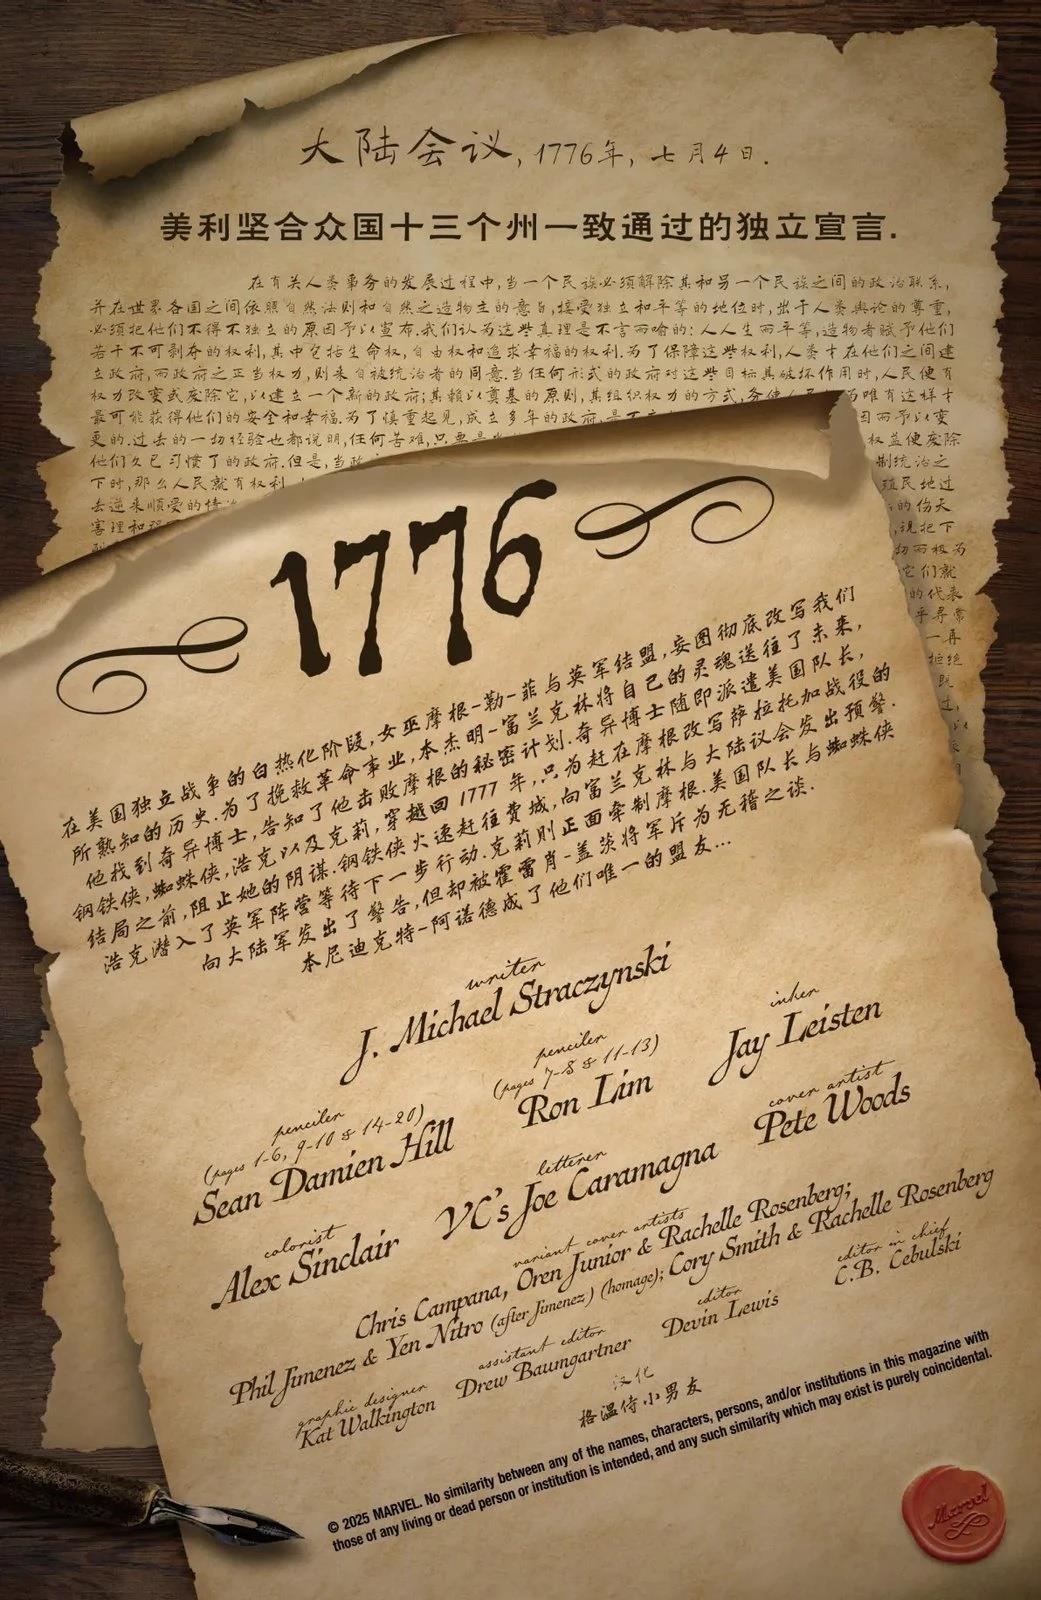 大陆会议, 1776年, 七月4日.
美利坚合众国十三个州一致通过的独立宣言.
在有关人类事务的发展过程中,当一个民族必须解除其和另一个民族之间的政治联系,
并在世界各国之间依照自然法则和自然之造物主的意旨,接受独立和平等的地位时,出于人类舆论的尊重,
必须把他们不得不独立的原因予以宣布.我们认为这些真理是不言而喻的: 人人生而平等,造物者赋予他们
若干不可剥夺的权利,其中包括生命权,自由权和追求幸福的权利.为了保障这些权利,人类才在他们之间建
立政府,而政府之正当权力,则来自被统治者的同意.当任何形式的政府对这些目标具破坏作用时,人民便有
权力改变或废除它,以建立一个新的政府;其赖以奠基的原则,其组织权力的方式,务使人民
唯有这样才
最可能获得他们的安全和幸福.为了慎重起见,成立多年的政府,是不
因而予以变
更的.过去的一切经验也都说明,任何苦难,只要是
权益便废除
他们久已习惯了的政府.但是,当政
制统治之
下时,那么人民就有权利
殖民地过
去逆来顺受的情
的伤天
害理和
说把下
它们就
的代表
乎寻常
一再
拒绝
既
过,
1776
在美国独立战争的白热化阶段,女巫摩根-勒-菲与英军结盟,妄图彻底改写我们
所熟知的历史.为了挽救革命事业,本杰明-富兰克林将自己的灵魂送往了未来,
他找到奇异博士,告知了他击败摩根的秘密计划.奇异博士随即派遣美国队长,
钢铁侠,蜘蛛侠,浩克以及克莉,穿越回 1777 年,只为赶在摩根改写萨拉托加战役的
结局之前,阻止她的阴谋.钢铁侠火速赶往费城,向富兰克林与大陆议会发出预警.
浩克潜入了英军阵营等待下一步行动.克莉则正面牵制摩根.美国队长与蜘蛛侠
向大陆军发出了警告,但却被霍雷肖-盖茨将军斥为无稽之谈.
本尼迪克特-阿诺德成了他们唯一的盟友...
writer
J. Michael Straczynski
penciler
(pages 1-6, 9-10 & 14-20)
Sean Damien Hill
penciler
(pages 7-8 & 11-13)
Ron Lim
inker
Jay Leisten
colorist
Alex Sinclair
letterer
VC's Joe Caramagna
cover artist
Pete Woods
variant cover artists
Chris Campana, Oren Junior & Rachelle Rosenberg;
Phil Jimenez & Yen Nitro (after Jimenez) (homage); Cory Smith & Rachelle Rosenberg
graphic designer
Kat Walkington
assistant editor
Drew Baumgartner
editor
Devin Lewis
editor in chief
C.B. Cebulski
汉化
格温侍小男友
© 2025 MARVEL. No similarity between any of the names, characters, persons, and/or institutions in this magazine with
those of any living or dead person or institution is intended, and any such similarity which may exist is purely coincidental.
Marvel